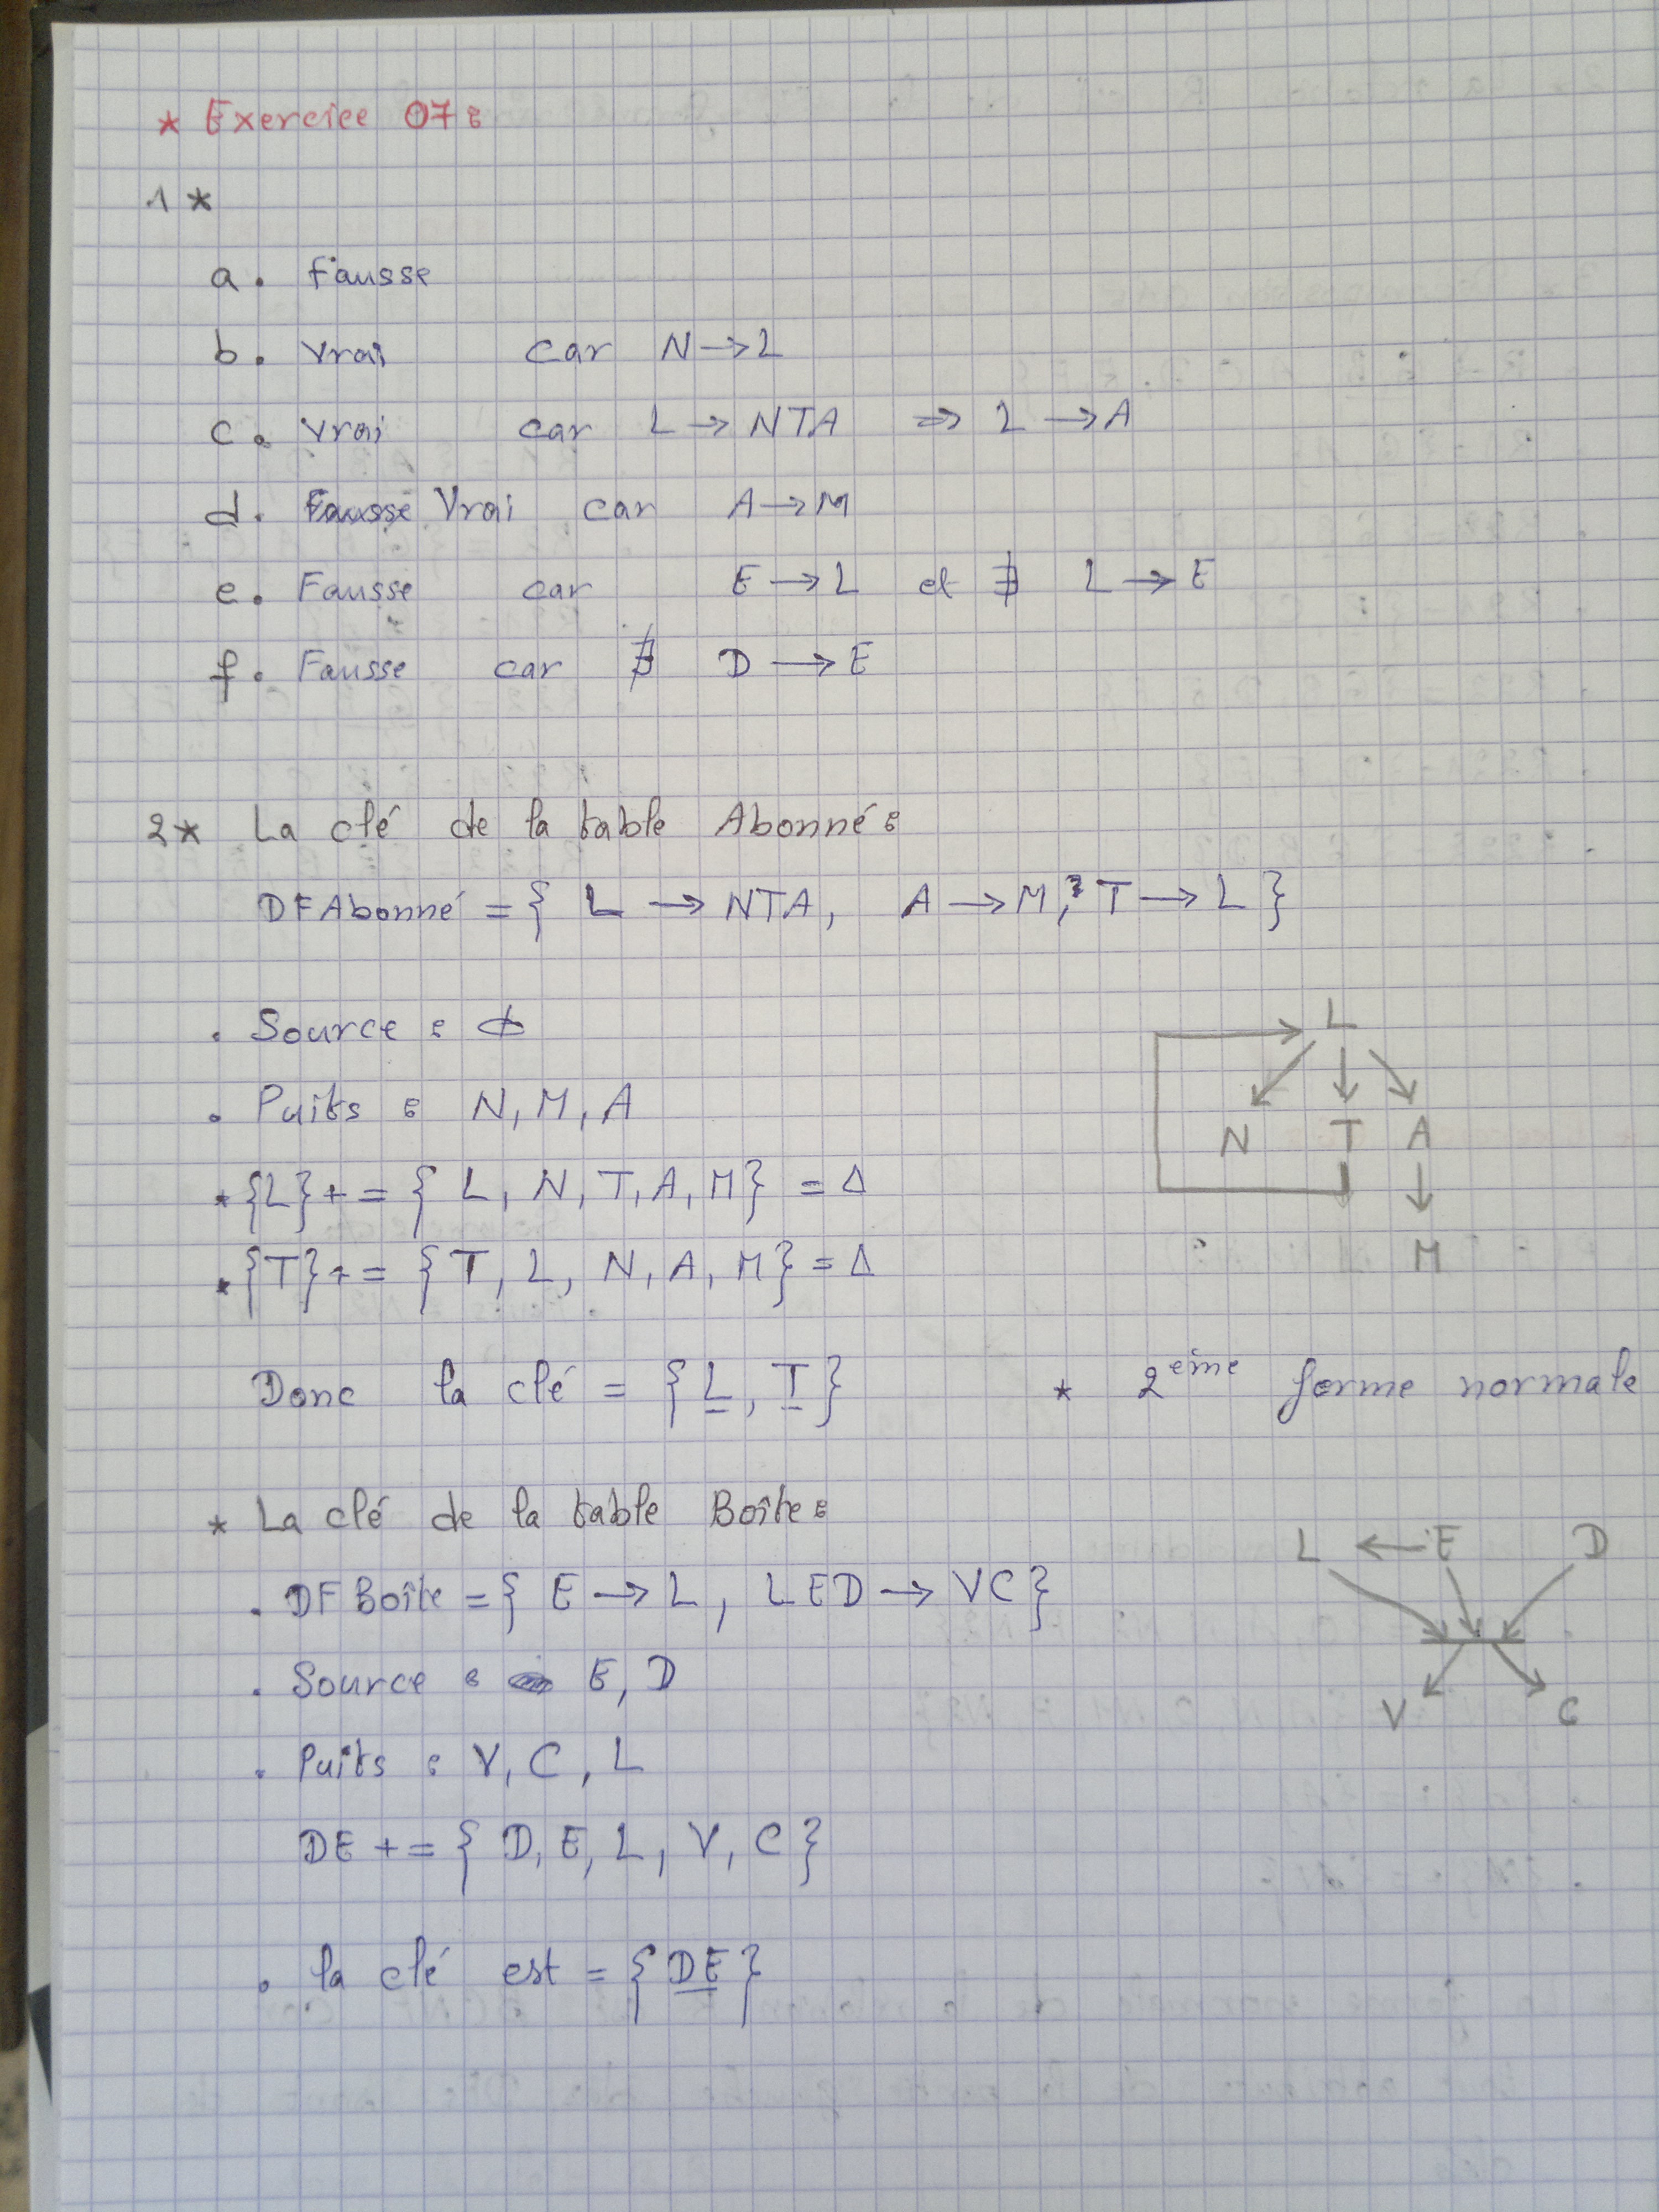 * Exercice 07 :
1 *
a. Fausse
b. Vrai car N → L
c. Vrai car L → NTA ⇒ L → A
d. Fausse Vrai car A → M
e. Fausse car E → L et ∄ L → E
f. Fausse car ∄ D → E
2* La clé de la table Abonné :
DF Abonné = { L → NTA, A → M, T → L }
. Source : ∅
. Puits : N, M, A
* {L}+ = { L, N, T, A, M } = Δ
* {T}+ = { T, L, N, A, M } = Δ
L
N T A
M
Donc la clé = { L, T } * 2ème forme normale
* La clé de la table Boîte :
. DF Boîte = { E → L, LED → VC }
. Source : E, D
. Puits : V, C, L
DE + = { D, E, L, V, C }
. la clé est = { DE }
L ← E D
V C